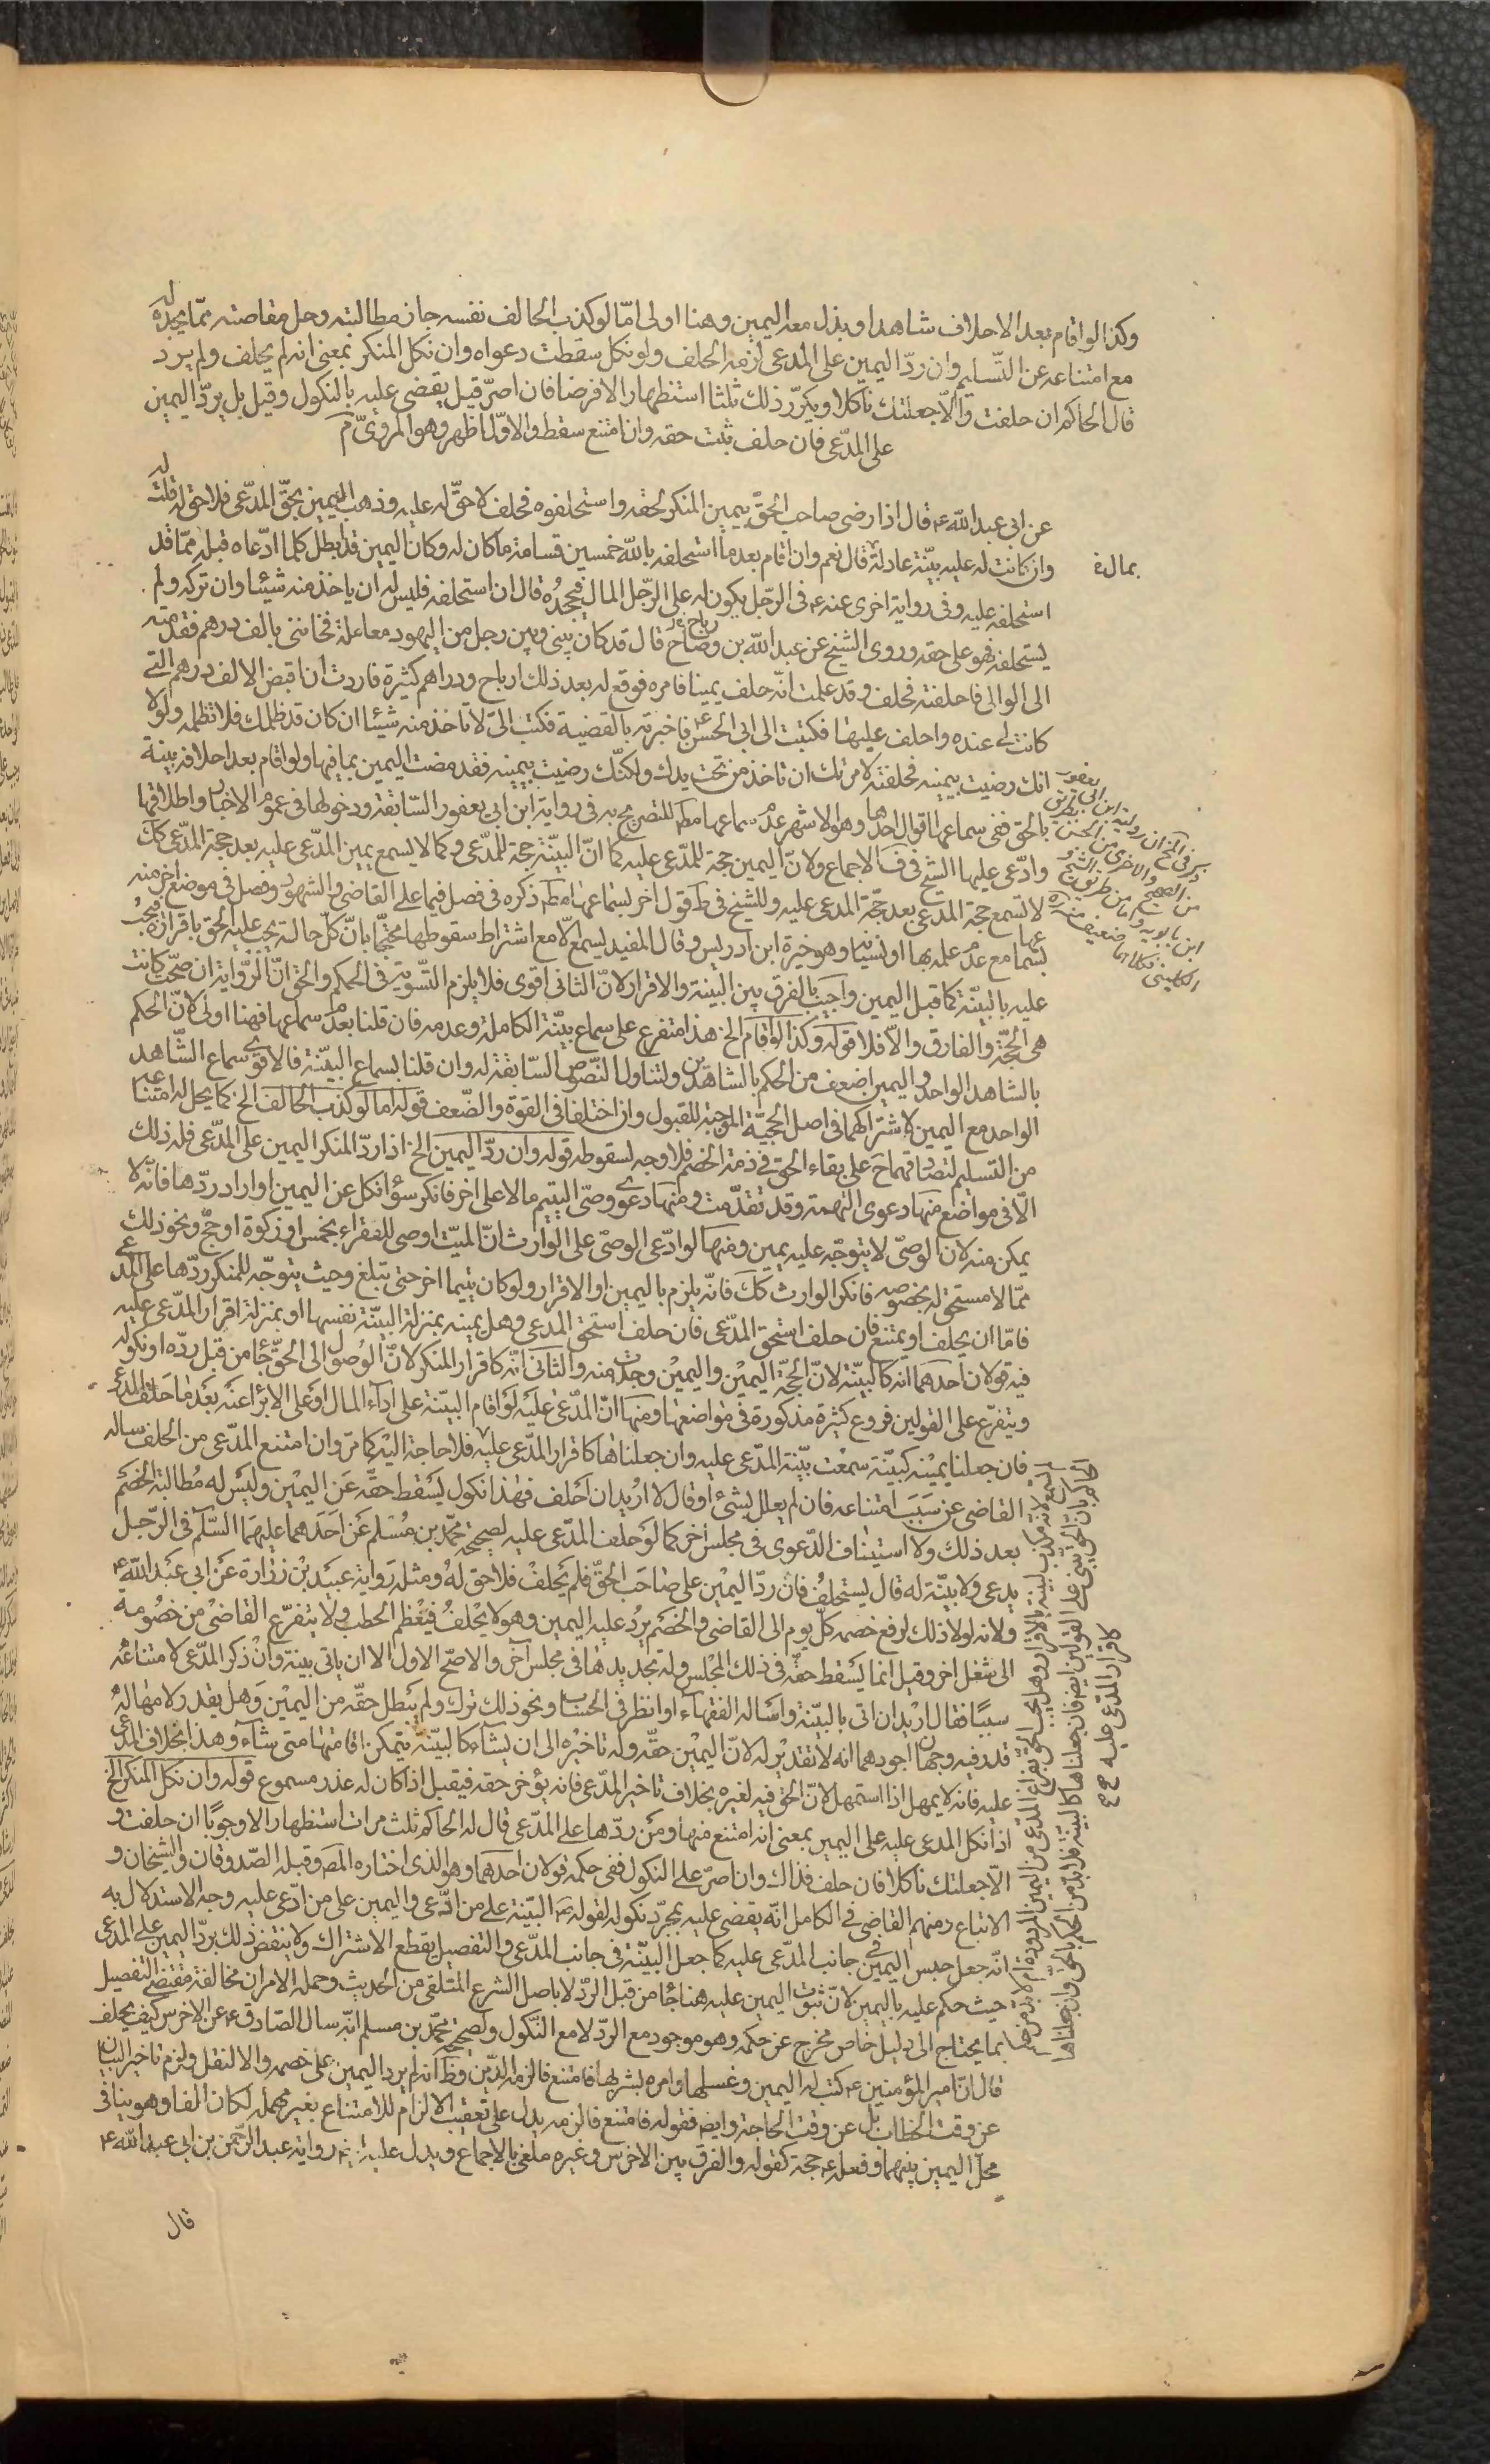 وكذا لو اقام بعد الاحلاف شاهدا وبذل معه اليمين وهنا اولى امّا لو كذب الحالف نفسه جاز مطالبته وحل مقاصته ممّا يجده له
مع امتناعه عن التّسليم وان ردّ اليمين على المدعى لزمه الحلف ولو نكل سقطت دعواه وان نكل المنكر بمعنى انه لم يحلف ولم يرد
قال الحاكم ان حلفت والّا جعلتك ناكلا ويكرّر ذلك ثلثا استظهارا لا فرضا فان اصرّ قيل يقضى عليه بالنكول وقيل بل يردّ اليمين
على المدّعى فان حلف ثبت حقه وان امتنع سقط والاوّل اظهر وهو المروىّ م
عن ابى عبد الله ع قال اذا رضى صاحب الحقّ بيمين المنكر لحقه واستحلفوه فحلف لا حقّ له عليه وذهب اليمين بحقّ المدّعى فلا حق له قلت له
وان كانت له عليه بيّنة عادلة قال نعم وان اقام بعد ما استحلفه بالله خمسين قسامة ما كان له وكان اليمين قد ابطل كلما ادّعاه قبله ممّا قد
استحلفه عليه وفى رواية اخرى عنه ع فى الرّجل يكون له على الرّجل المال فيجحدُه قال ان استحلفه فليس له ان ياخذ منه شيئا وان تركه ولم
يستحلفه فهو على حقه وروى الشيخ عن عبد الله بن وضاح قال قد كان بينى وبين رجل من اليهود معاملة فخاننى بالف درهم فقدمته
الى الوالى فاحلفته فحلف وقد علمت انّه حلف يمينا فاجره فوقع له بعد ذلك ارباح ودراهم كثيرة فاردت ان اقبض الالف درهم التے
كانت لى عنده واحلف عليها فكتبت الى ابى الحسن ع فاخبرته بالقضية فكتب الىّ لا تاخذ منه شيئا ان كان قد ظلمك فلا تظلمه ولولا
انك رضيت بيمينه فحلفته لامرتك ان تاخذ من تحت يدك ولكنّك رضيت بيمينه فقد مضت اليمين بما فيها ولو اقام بعد احلافه بينة
بالحق ففى سماعها اقوال احدها وهو الاشهر عدم سماعها مط للتصريح به فى رواية ابن ابى يعفور السّابقة ودخولها فى عموم الاخبار واطلاقها
وادّعى عليها الشيخ فى ف الاجماع ولانّ اليمين حجة للمدّعى عليه كما انّ البيّنة حجة للمدّعى وكما لا يسمع يمين المدّعى عليه بعد حجة المدّعى كك
لا تسمع حجة المدعى بعد حجّة المدعى عليه وللشيخ فى ط قول اخر بسماعها مط ذكره فى فصل فيما على القاضى والشهود وفصل فى موضع اخر منه
بسماعها مع عدم علمه بها او نسيانه وهو خيرة ابن ادريس وقال المفيد يسمع الّا مع اشتراط سقوطها محتجّا بانّ كلّ حالة يجب عليه الحق باقراره فيجبُ
عليه بالبيّنة كما قبل اليمين واجيب بالفرق بين البينة والاقرار لانّ الثانى اقوى فلا يلزم التّسوية فى الحكم والحق انّ الرّواية ان صحّت كانت
هى الحجّة والفارق والّا فلا قوله وكذا لو اقام الخ هذا متفرع على سماع بيّنة الكاملة وعدمه فان قلنا بعدم سماعها فهنا اولى لانّ الحكم
بالشاهد الواحد واليمين اضعف من الحكم بالشاهدين ولتناول النّصوص السّابقة له وان قلنا بسماع البيّنة فالاقوى سماع الشّاهد
الواحد مع اليمين لاشتراكهما فى اصل الحجيّة الموجبة للقبول وان اختلفا فى القوة والضّعف قوله اما لو كذب الحالف الخ كما يحل له امتناعه
من التسليم لتصادقهما ح على بقاء الحق فى ذمة الخصم فلا وجه لسقوطه قوله وان ردّ اليمين الخ اذا ردّ المنكر اليمين على المدّعى فله ذلك
الّا فى مواضع منها دعوى التهمة وقد تقدّمت ومنها دعوى وصّى اليتيم مالا على اخر فانكر سوا نكل عن اليمين او اراد ردّها فانّه لا
يمكن منه لان الوصىّ لا يتوجّه عليه يمين ومنها لو ادّعى الوصىّ على الوارث انّ الميّت اوصى للفقراء بخمس او زكوة او حجّ ونحو ذلك
ممّا لا مستحق له بخصوصه فانكر الوارث كك فانّه يلزم باليمين او الاقرار ولو كان يتيما اخر حتى يبلغ وحيث يتوجّه للمنكر ردّها على المدعى
فامّا ان يحلف او يمتنع فان حلف استحق المدّعى فان حلف استحق المدعى وهل يمينه بمنزلة البيّنة نفسها او بمنزلة اقرار المدّعى عليه
فيه قولان احدهما انّه كالبيّنة لانّ الحجّة اليمين واليمين وجدت منه والثانى انّه كاقرار المنكر لانّ الوصول الى الحقّ جأ من قبل ردّه او نكوله
ويتفرّع على القولين فروع كثيرة مذكورة فى مواضعها ومنها انّ المدّعى عليه لو اقام البيّنة على اداء المال او على الابراء عنه بعد ما حلف المدعى
فان جعلنا يمينه كبيّنة سمعت بيّنة المدّعى عليه وان جعلناها كاقرار المدّعى عليه فلا حاجة اليه كما مرّ وان امتنع المدّعى من الحلف ساله
القاضى عن سبب امتناعه فان لم يعلل بشئ او قال لا اريد ان احلف فهذا نكول يسقط حقه عن اليمين وليس له مطالبة الخصم
بعد ذلك ولا استيناف الدّعوى فى مجلس اخر كما لو حلف المدّعى عليه لصحيحة محمّد بن مسلم عن احدهما عليهما السّلم فى الرّجل
يدعى ولا بيّنة له قال يستحلفُ فان ردّ اليمين على صاحب الحقّ فلم يحلف فلا حق له ومثله رواية عبيد بن زرارة عن ابى عبد الله ع
ولانه لولا ذلك لرفع خصمه كلّ يوم الى القاضى والخصم يردُ عليه اليمين وهو لا يحلفُ فيعظم الخطب ولا يتفرّع القاضى من خصومة
الى شغل اخر وقيل انما يسقط حقّه فى ذلك المجلس وله تجديدها فى مجلس آخر والاصّح الاول الا ان ياتى ببينة وان ذكر المدّعى لامتناعه
سببًا فقال اريد ان اتى بالبيّنة واساله الفقهاء او انظر فى الحساب ونحو ذلك ترك ولم يبطل حقّه من اليمين وهل يقدر لامهاله
قدر فيه وجهان اجودهما انه لا تقدير له لانّ اليمين حقّه وله تاخيره الى ان يشاء كالبيّنة يتمكن اقامتها متى شاء وهذا بخلاف المدعى
عليه فانه لا يمهل اذا استمهل لانّ الحق فيه لغيره بخلاف تاخير المدّعى فانه يؤخر حقه فيقبل اذا كان له عذر مسموع قوله وان نكل المنكر الخ
اذا نكل المدعى عليه على اليمين بمعنى انه امتنع منها ومن ردّها على المدّعى قال له الحاكم ثلث مرات استظهارا لا وجوبًا ان حلفت و
الّا جعلتك ناكلا فان حلف فذاك وان اصرّ على النكول ففى حكمه قولان احدهما وهو الذى اختاره المص وقبله الصّدوقان والشيخان و
الاتباع ومنهم القاضى فى الكامل انّه يقضى عليه بمجرّد نكوله لقوله ص البيّنة على من ادّعى واليمين على من ادّعى عليه وجه الاستدلال به
انّه جعل جنس اليمين فى جانب المدّعى عليه كما جعل البيّنة فى جانب المدّعى والتفصيل يقطع الاشتراك ولا ينتقض ذلك بردّ اليمين على المدعى
حيث حكم عليه باليمين لانّ ثبوت اليمين عليه هنا جأ من قبل الردّ لا باصل الشرع المتلقى من الحديث وحمله الامران مخالفة مقتضى التفصيل
بما يحتاج الى دليل خاص مخرج عن حكمه وهو موجود مع الردّ لا مع النّكول ولصحيحة محمّد بن مسلم انّه سال الصّادق ع عن الاخرس كيف يحلف
قال انّ امير المؤمنين ع كتب له اليمين وغسلها وامره بشربها فامتنع فالزمه الدّين وظ انه لم يرد اليمين على خصمه والا لنقل ولزم تاخير البيان
عن وقت الخطاب بل عن وقت الحاجة وايضا فقوله فامتنع فالزمه يدل على تعقيب الالزام للامتناع بغير مهملة لكان الفا وهو ينافى
محلّ اليمين بينهما وفعله ع حجة كقوله والفرق بين الاخرس وغيره ملغى بالاجماع ويدل عليه رواية عبد الرّحمن بن ابى عبد الله ع
قال
بمال ع
رباح خ
ذكر فى الخ ان رواية ابن ابى يعفور بطريق
من الصحيح والاخرى من الحسن
ابن بابويه واما من طريق الشيخ و
الكلينى فكلاهما ضعيف
كاقرار المدّعى عليه